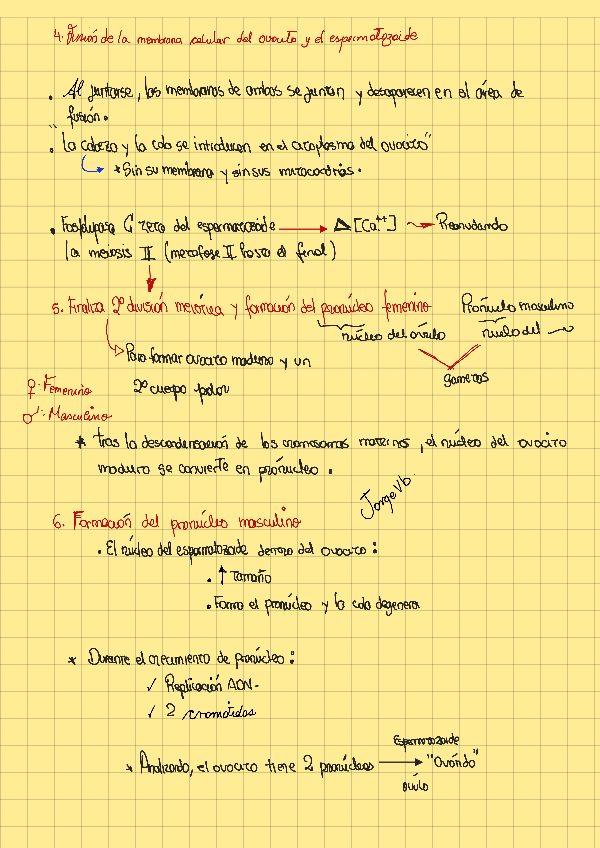 4. Fusión de la membrana celular del ovocito y el espermatozoide
• Al juntarse, las membranas de ambos se juntan y desaparecen en el área de
fusión.
• "La cabeza y la cola se introducen en el citoplasma del ovocito"
* Sin su membrana y sin sus mitocondrias.
• Fosfolipasa C zeta del espermatozoide → Δ [Ca++] → Reanudando
la meiosis II (metafase II hasta el final)
5. Finaliza 2º división meiótica y formación del pronúcleo femenino
Pronúcleo masculino
núcleo del óvulo
núcleo del
Para formar ovocito maduro y un
2º cuerpo polar
gametos
♀: Femenino
♂: Masculino
* Tras la descondensación de los cromosomas maternos, el núcleo del ovocito
maduro se convierte en pronúcleo.
JorgeVb.
6. Formación del pronúcleo masculino
• El núcleo del espermatozoide dentro del ovocito:
• ↑ Tamaño
• Forma el pronúcleo y la cola degenera
* Durante el crecimiento de pronúcleo:
✓ Replicación ADN-
✓ 2 cromátidas
* Analizando, el ovocito tiene 2 pronúcleos → "Ovótido"
Espermatozoide
óvulo